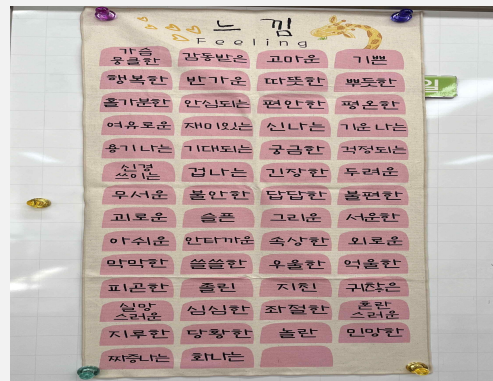 느낌
Feeling
가슴 뭉클한 감동받은 고마운 기쁜
행복한 반가운 따뜻한 뿌듯한
홀가분한 안심되는 편안한 평온한
여유로운 재미있는 신나는 기운 나는
용기나는 기대되는 궁금한 걱정되는
신경 쓰이는 겁나는 긴장한 두려운
무서운 불안한 답답한 불편한
괴로운 슬픈 그리운 서운한
아쉬운 안타까운 속상한 외로운
막막한 쓸쓸한 우울한 억울한
피곤한 졸린 지친 귀찮은
실망 스러운 심심한 좌절한 혼란 스러운
지루한 당황한 놀란 민망한
짜증나는 화나는
일